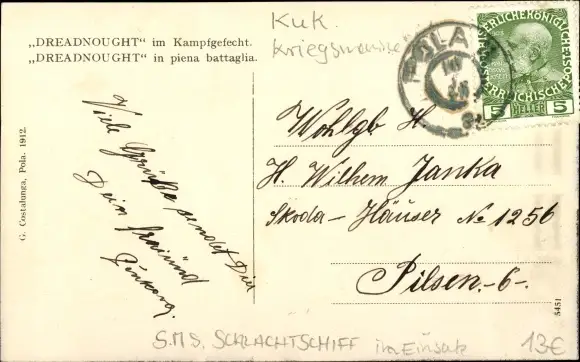 „DREADNOUGHT" im Kampfgefecht.
„DREADNOUGHT" in piena battaglia.
KuK.
Kriegsmarine
POLA
5 HELLER 5
G. Costalunga, Pola. 1912.
Viele Grüße sendet Dir
Dein freund
Wohlgb H.
H. Wilhem Janka
Skoda-Häuser No 1256
Pilsen.-6-.
5451
S.M.S. SCHLACHTSCHIFF im Einsatz
13€